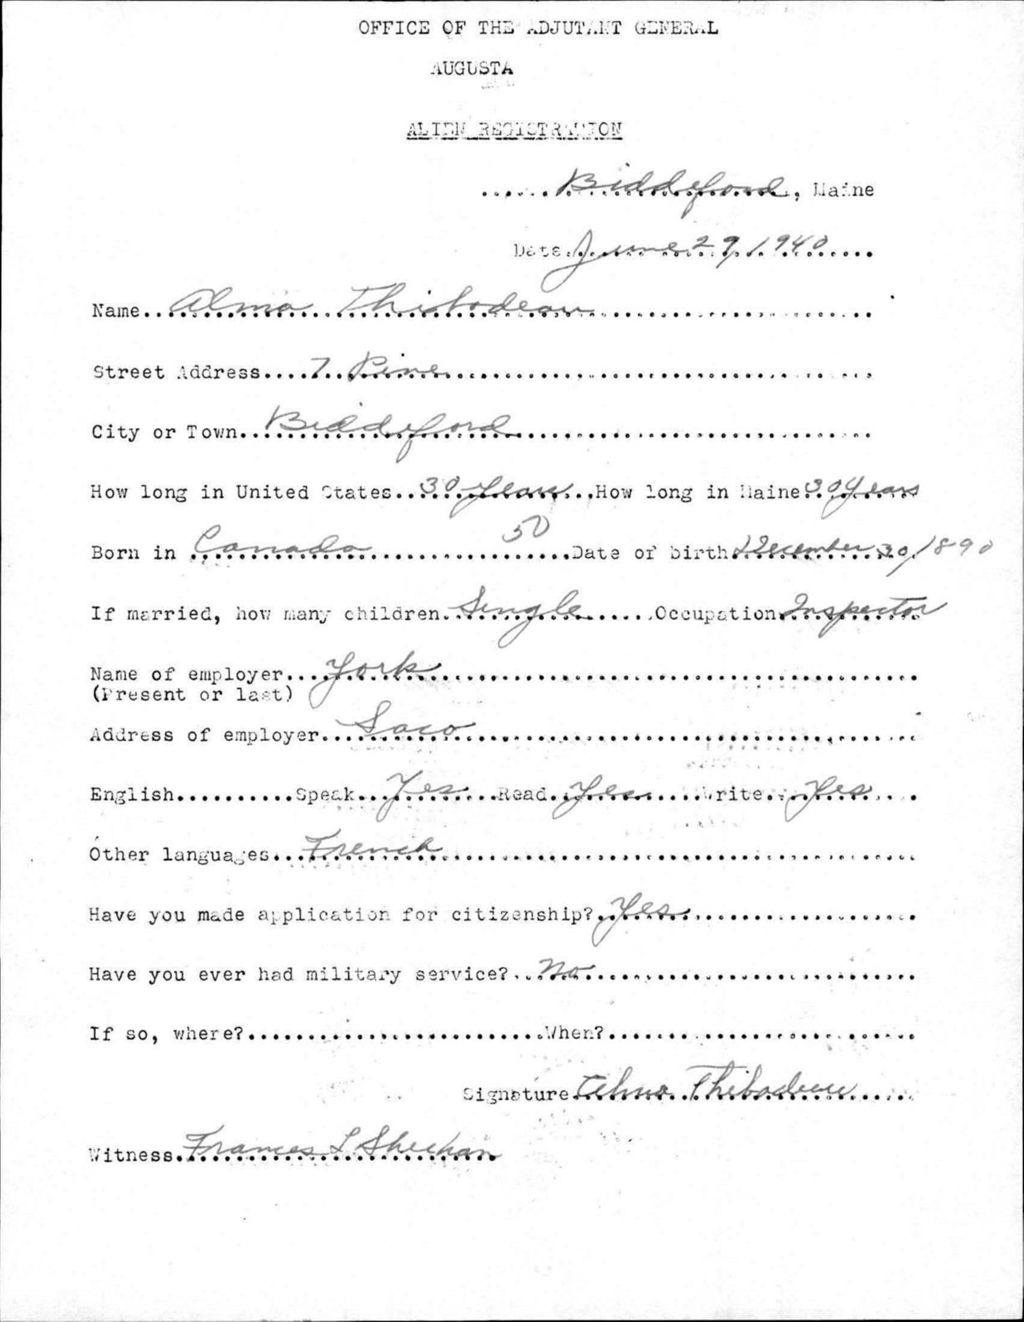 OFFICE OF THE ADJUTANT GENERAL
AUGUSTA
ALIEN REGISTRATION
Biddeford, Maine
Date June 29, 1940
Name Alma Thibodeau
Street Address 7 Pine
City or Town Biddeford
How long in United States 30 years How long in Maine 30 Years
50
Born in Canada Date of birth December 30, 1890
If married, how many children Single Occupation Inspector
Name of employer York
(Present or last)
Address of employer Saco
English Speak Yes Read Yes Write Yes
Other languages French
Have you made application for citizenship? Yes
Have you ever had military service? No
If so, where? When?
Signature Alma Thibodeau
Witness Frances L Sheehan